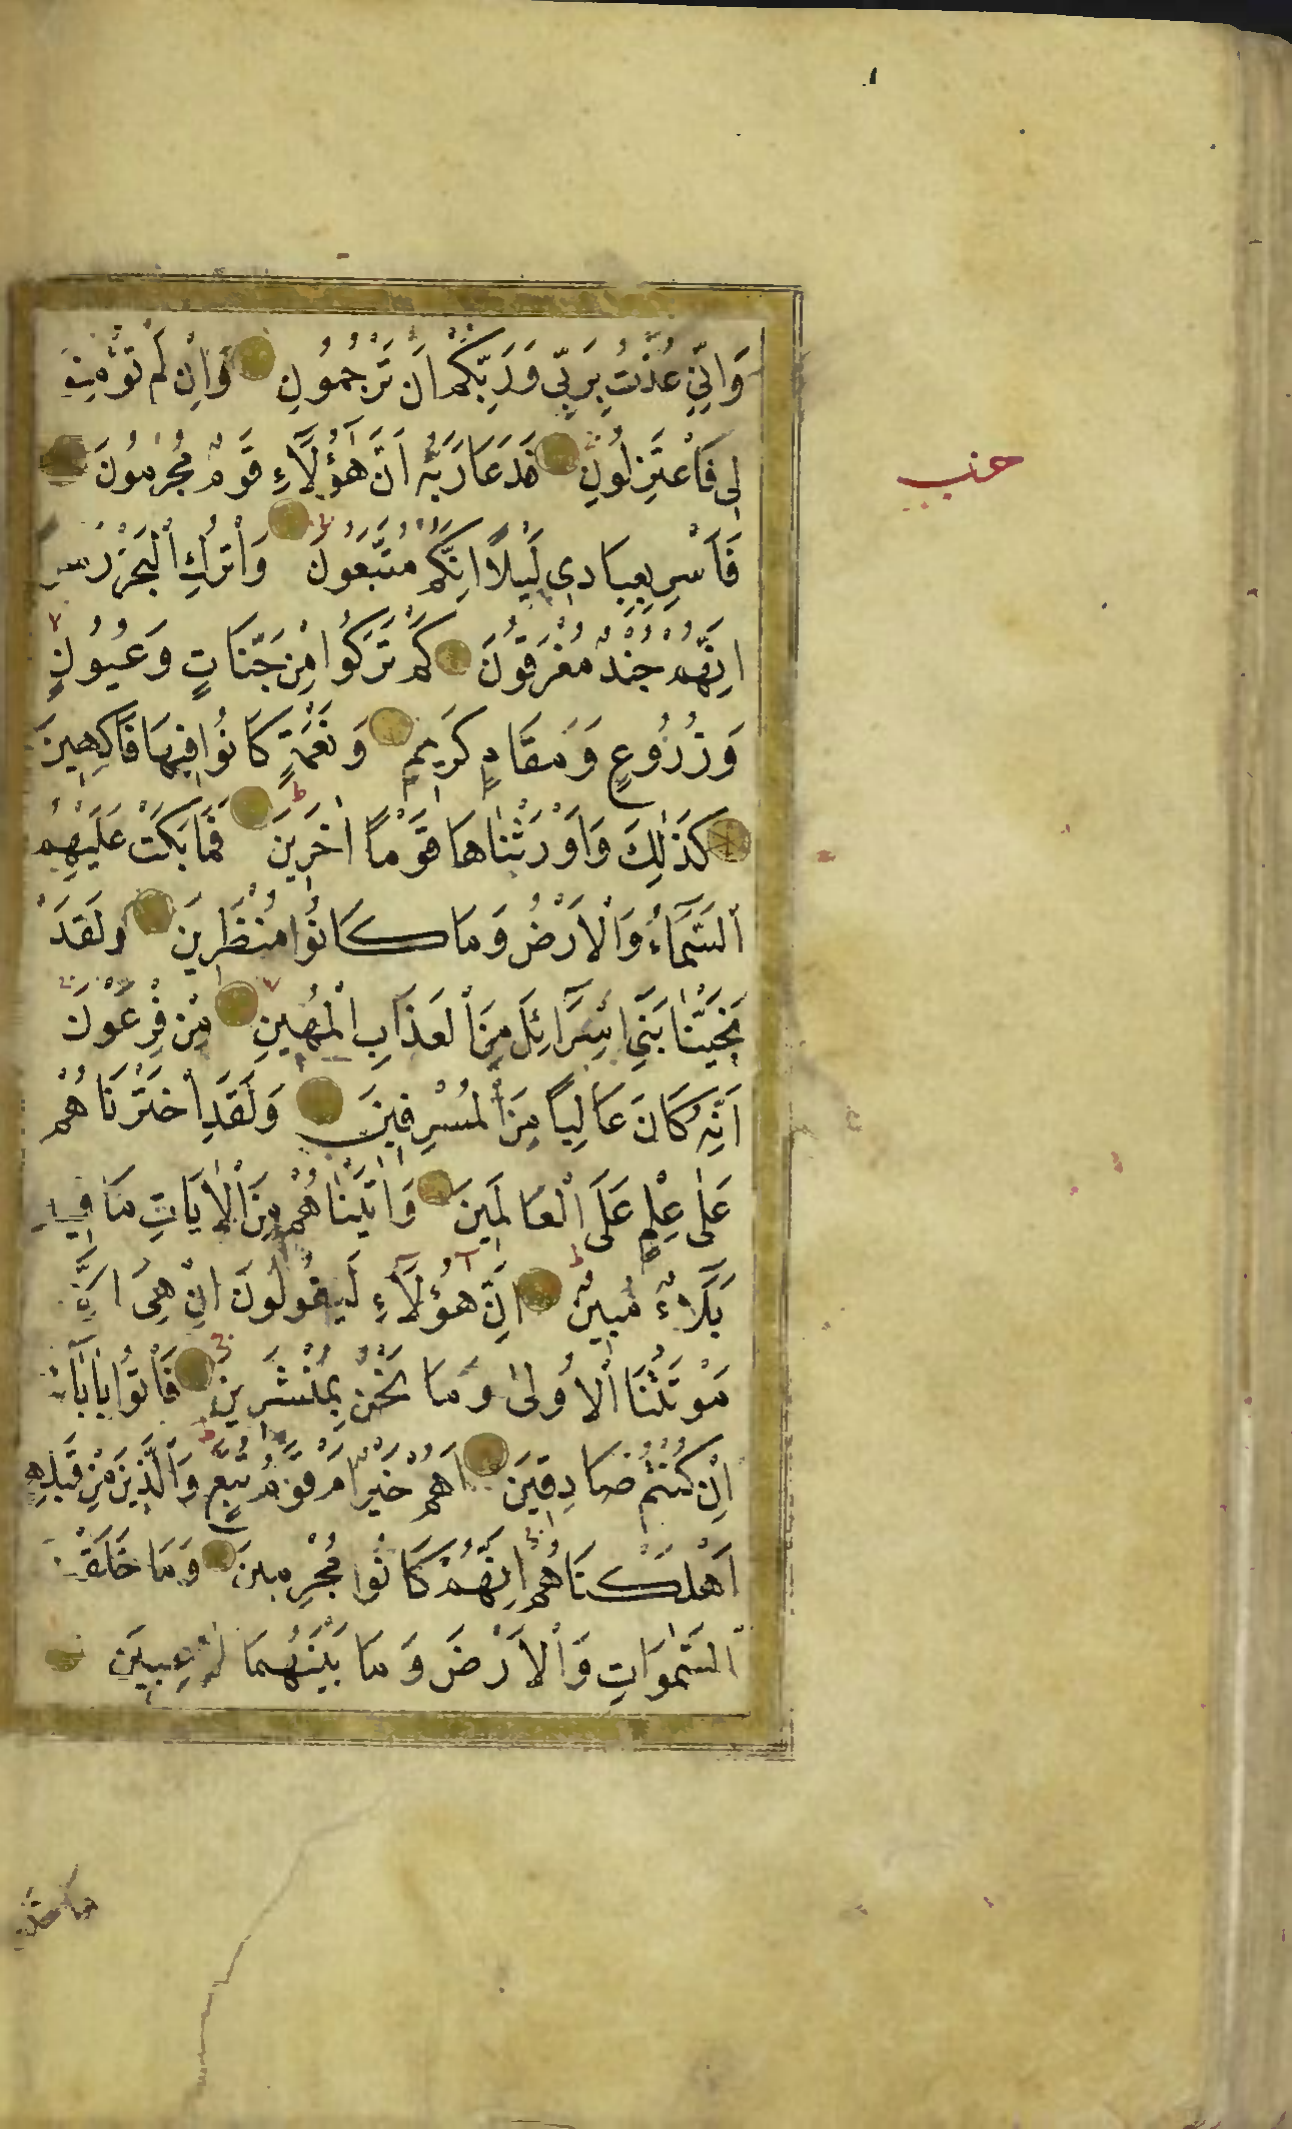 وَاِنّٖي عُذْتُ بِرَبّٖي وَرَبِّكُمْ اَنْ تَرْجُمُونِ وَاِنْ لَمْ تُؤْمِنُو
لٖي فَاعْتَزِلُونِ فَدَعَا رَبَّهُ اَنَّ هٰٓؤُلَآءِ قَوْمٌ مُجْرِمُونَ
فَاَسْرِ بِعِبَادٖي لَيْلًا اِنَّكُمْ مُتَّبَعُونَ وَاتْرُكِ الْبَحْرَ
اِنَّهُمْ جُنْدٌ مُغْرَقُونَ كَمْ تَرَكُوا مِنْ جَنَّاتٍ وَعُيُونٍ
وَزُرُوعٍ وَمَقَامٍ كَرٖيمٍ وَنَعْمَةٍ كَانُوا فٖيهَا فَاكِهٖينَ
كَذٰلِكَ وَاَوْرَثْنَاهَا قَوْمًا اٰخَرٖينَ فَمَا بَكَتْ عَلَيْهِمُ
السَّمَآءُ وَالْاَرْضُ وَمَا كَانُوا مُنْظَرٖينَ وَلَقَدْ
نَجَّيْنَا بَنٖٓي اِسْرَٓائٖلَ مِنَ الْعَذَابِ الْمُهٖينِ مِنْ فِرْعَوْنَ
اِنَّهُ كَانَ عَالِيًا مِنَ الْمُسْرِفٖينَ وَلَقَدِ اخْتَرْنَاهُمْ
عَلٰى عِلْمٍ عَلَى الْعَالَمٖينَ وَاٰتَيْنَاهُمْ مِنَ الْاٰيَاتِ مَا فٖيهِ
بَلَٓاءٌ مُبٖينٌ اِنَّ هٰٓؤُلَآءِ لَيَقُولُونَ اِنْ هِيَ اِلَّا
مَوْتَتُنَا الْاُولٰى وَمَا نَحْنُ بِمُنْشَرٖينَ فَاْتُوا بِاٰبَٓائِنَا
اِنْ كُنْتُمْ صَادِقٖينَ اَهُمْ خَيْرٌ اَمْ قَوْمُ تُبَّعٍ وَالَّذٖينَ مِنْ قَبْلِهِمْ
اَهْلَكْنَاهُمْ اِنَّهُمْ كَانُوا مُجْرِمٖينَ وَمَا خَلَقْنَا
السَّمٰوَاتِ وَالْاَرْضَ وَمَا بَيْنَهُمَا لَاعِبٖينَ
حزب
ما خلقنا